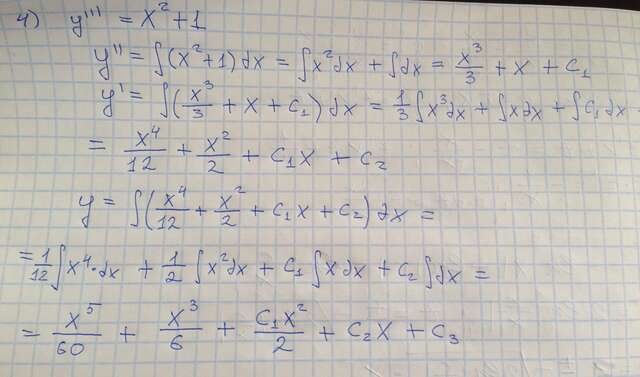 4) y''' = x² + 1
y'' = ∫(x² + 1) dx = ∫x²dx + ∫dx = x³/3 + x + C₁
y' = ∫(x³/3 + x + C₁) dx = 1/3 ∫x³dx + ∫xdx + ∫C₁dx =
= x⁴/12 + x²/2 + C₁x + C₂
y = ∫(x⁴/12 + x²/2 + C₁x + C₂) dx =
= 1/12 ∫x⁴·dx + 1/2 ∫x²dx + C₁∫xdx + C₂∫dx =
= x⁵/60 + x³/6 + C₁x²/2 + C₂x + C₃